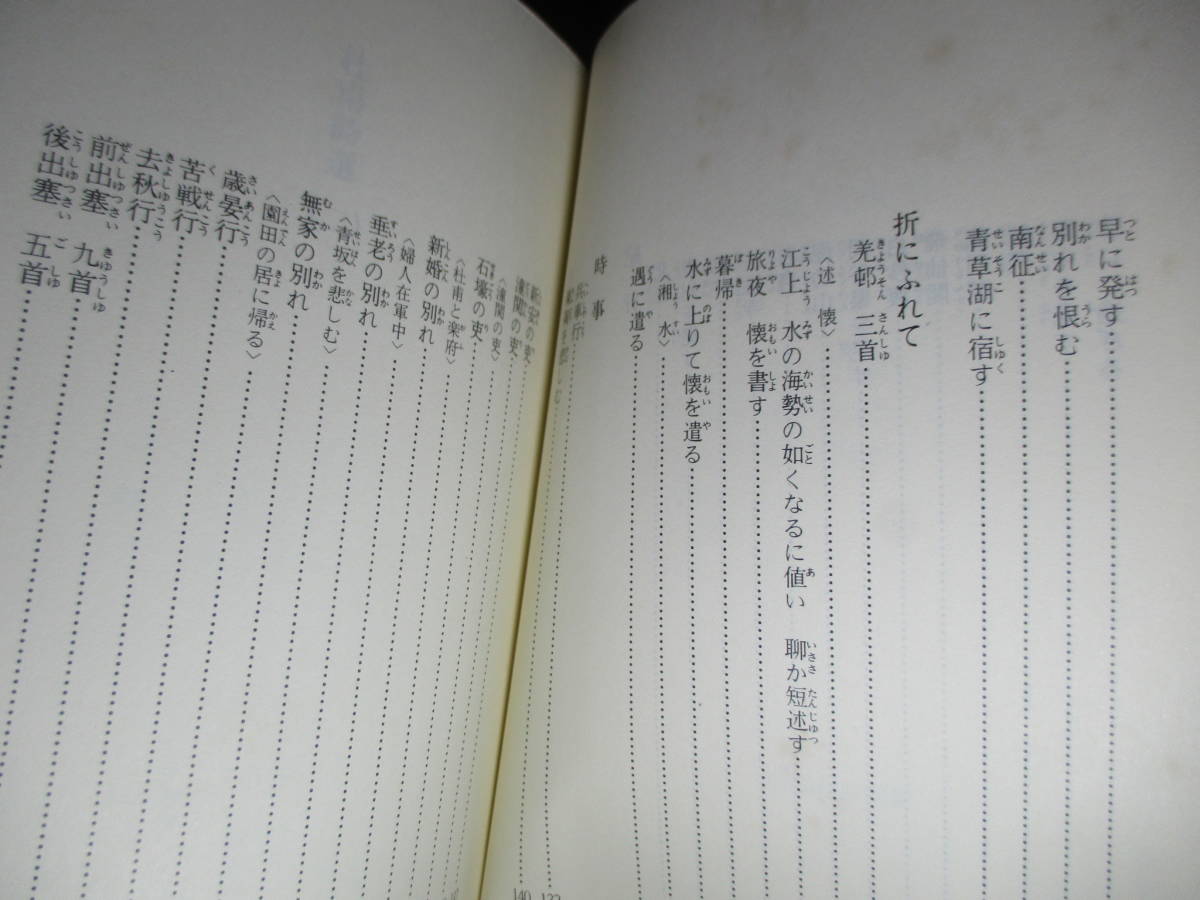 早に発す
別れを恨む
南征
青草湖に宿す
折にふれて
羌邨 三首
〈述懐〉
江上 水の海勢の如くなるに値い 聊か短述す
旅夜 懐を書す
暮帰
水に上りて懐を遣る
〈湘水〉
遇に遣る
時事
兵車行
新安の吏
潼関の吏
〈潼関の吏〉
石壕の吏
〈杜甫と楽府〉
新婚の別れ
〈婦人在軍中〉
垂老の別れ
〈青坂を悲しむ〉
無家の別れ
〈園田の居に帰る〉
歳晏行
苦戦行
去秋行
前出塞 九首
後出塞 五首